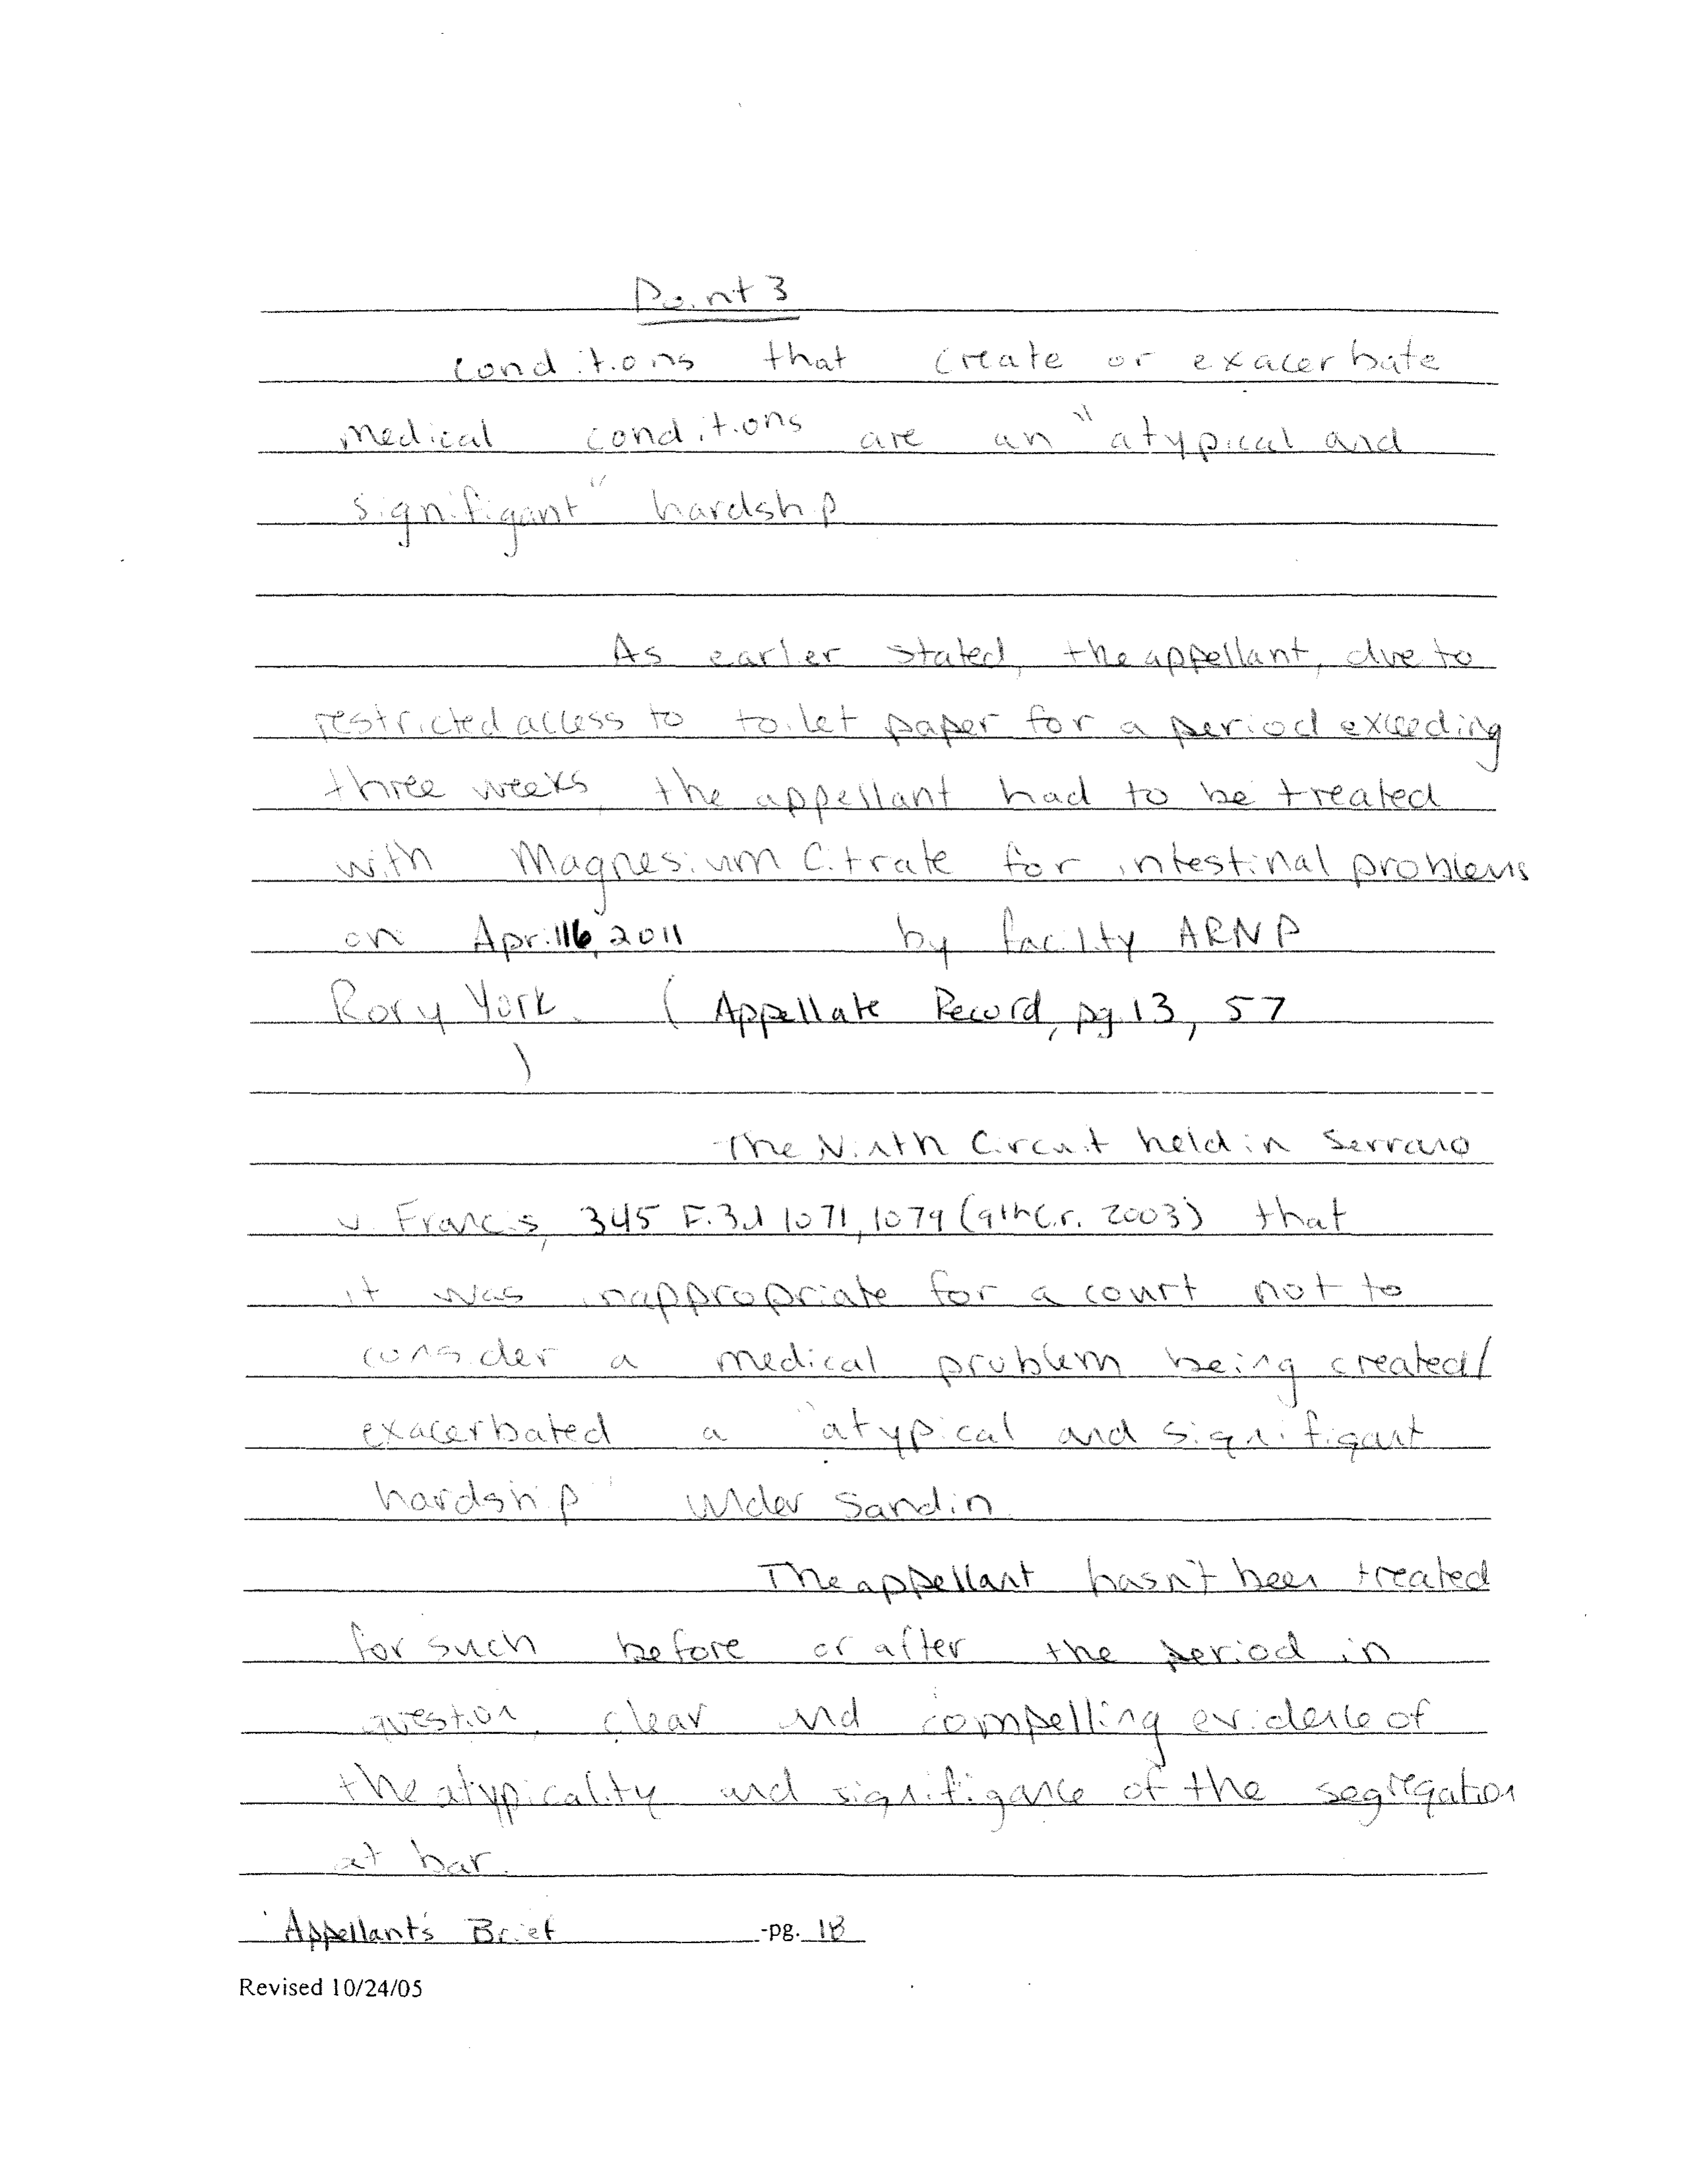 Point 3
conditions that create or exacerbate
medical conditions are an "atypical and
signifigant" hardship
As earlier stated, the appellant, due to
restricted access to toilet paper for a period exceeding
three weeks, the appellant had to be treated
with Magnesium Citrate for intestinal problems
on April 16, 2011 by facilty ARNP
Rory York. ( Appellate Record, pg. 13, 57
)
The Ninth Circuit held in Serrano
v. Francis, 345 F.3d 1071, 1079 (9th Cir. 2003) that
it was inappropriate for a court not to
consider a medical problem being created/
exacerbated a "atypical and signifigant
hardship" under Sandin.
The appellant hasn't been treated
for such before or after the period in
question, clear and compelling evidence of
the atypicality and signifigance of the segregation
at bar.
Appellant's Brief -pg. 18
Revised 10/24/05